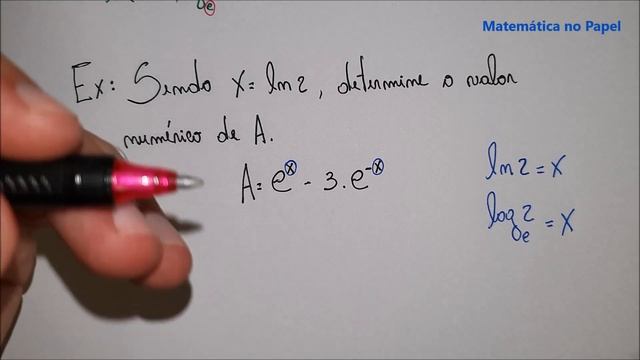 e
Matemática no Papel
Ex: Sendo x = ln 2, determine o valor
numérico de A.
A = e^x - 3.e^-x
ln 2 = x
log_e 2 = x